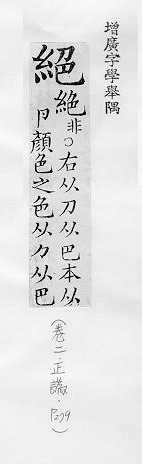 增廣字學舉隅
絕
絶非○右从刀从巴本从
卩顏色之色从力从巴
(卷二·正譌·P209)